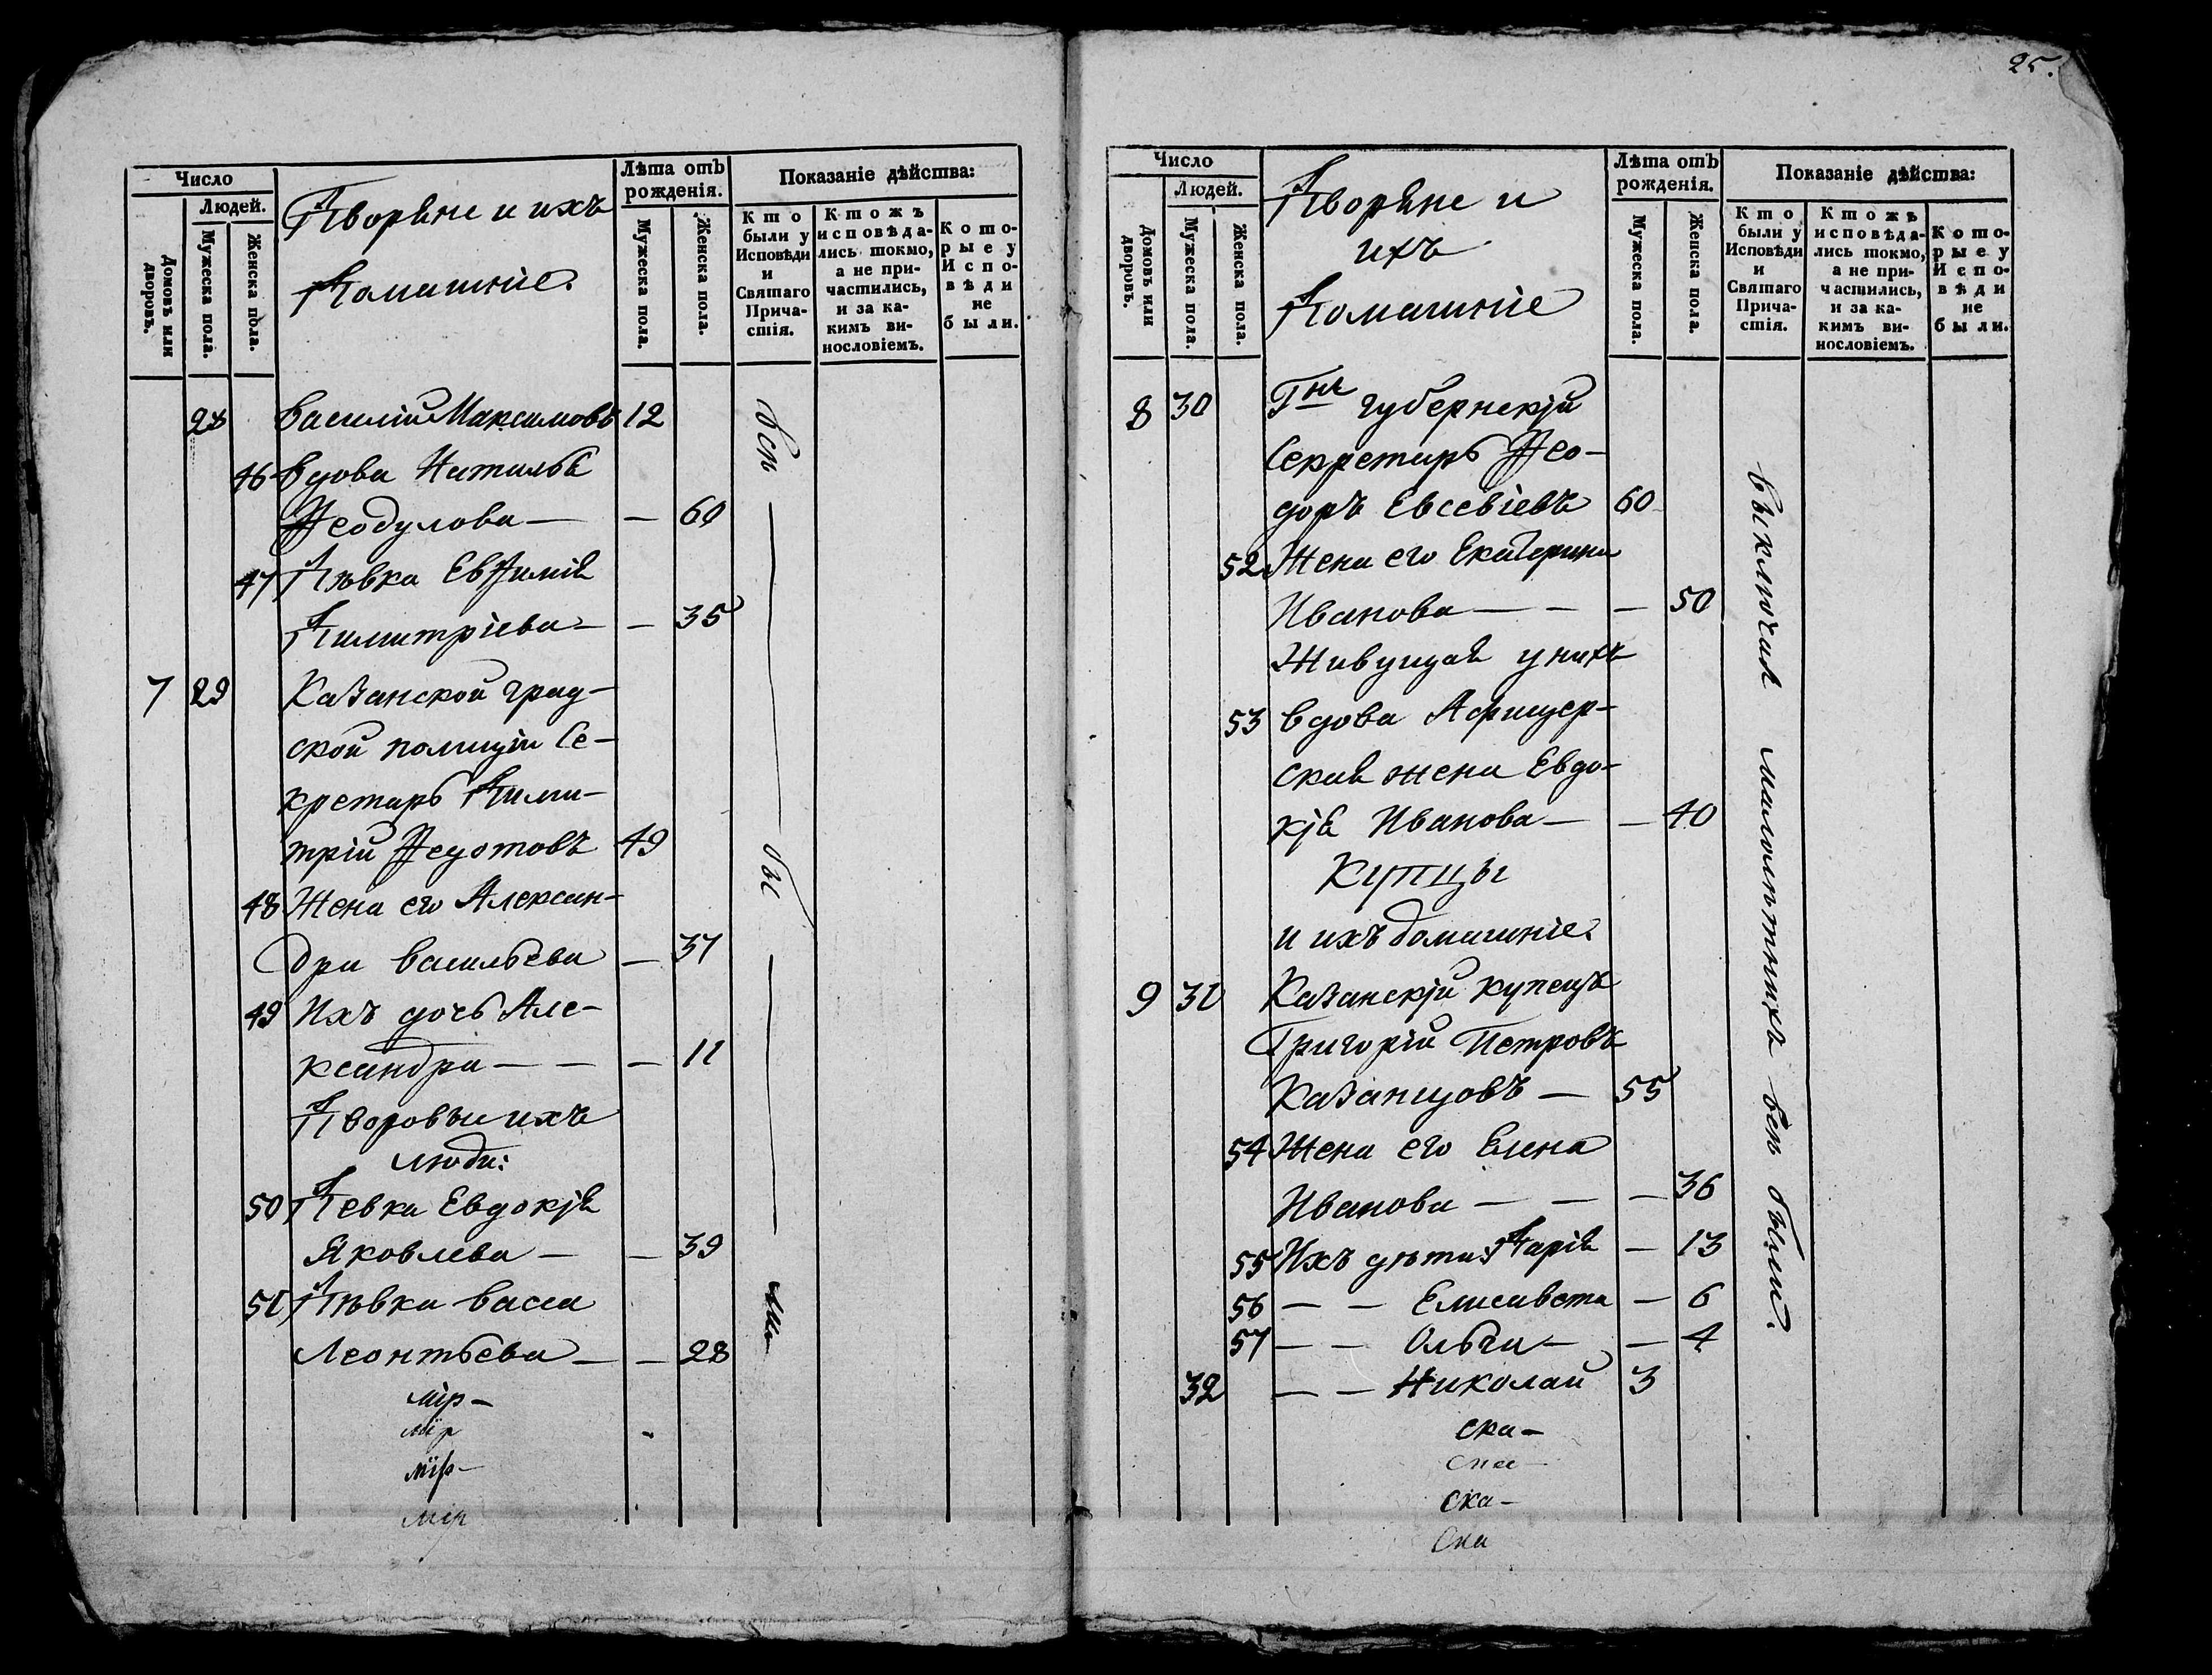 Число
Людей.
Домовъ или дворовъ.
Мужеска пола.
Женска пола.
Дворяне и ихъ
Домашніе.
Лѣта отъ рожденія.
Мужеска пола.
Женска пола.
Показаніе дѣйства:
Кто были у Исповѣди и Святаго Прича-стія.
Ктожъ исповѣда-лись токмо, а не при-частились, и за ка-кимъ ви-нословіемъ.
Кото-рые у Испо-вѣди не были.
28 Василій Максимовъ 12
46 Вдова Наталья
Ѳеодулова — — 60
47 Дѣвка Евѳимія
Димитріева — — 35
7 29 Казанской град-
ской полиціи Се-
кретарь Дими-
трій Ѳедотовъ 49
48 Жена его Алексан-
дра Васильева — 37
49 Ихъ дочь Але-
ксандра — — — 11
Дворовыи ихъ
люди:
50 Девка Евдокія
Яковлева — — 39
51 Дѣвка Васса
Леонтьева — — 28
всѣ — бы — ли
мір-
мір
мір-
мір
25.
Число
Людей.
Домовъ или дворовъ.
Мужеска пола.
Женска пола.
Дворяне и
ихъ
Домашніе
Лѣта отъ рожденія.
Мужеска пола.
Женска пола.
Показаніе дѣйства:
Кто были у Исповѣди и Святаго Прича-стія.
Ктожъ исповѣда-лись токмо, а не при-частились, и за ка-кимъ ви-нословіемъ.
Кото-рые у Испо-вѣди не были.
8 30 Гнъ губернскій
Секретарь Ѳео-
доръ Евсевіевъ 60
52 Жена его Екатерина
Иванова — — — 50
Живущая у нихъ
53 вдова Афицер-
ская жена Евдо-
кія Иванова — — 40
Купцы
и ихъ домашніе.
9 31 Казанскій купецъ
Григорій Петровъ
Казанцовъ — 55
54 Жена его Елена
Иванова — — — 36
55 Ихъ дѣти: Дарія — 13
56 — — Елисавета — 6
57 — — Ольга — — 4
32 — — Николай 3
выключая малолѣтнихъ всѣ были.
ска-
ска-
ска-
ска